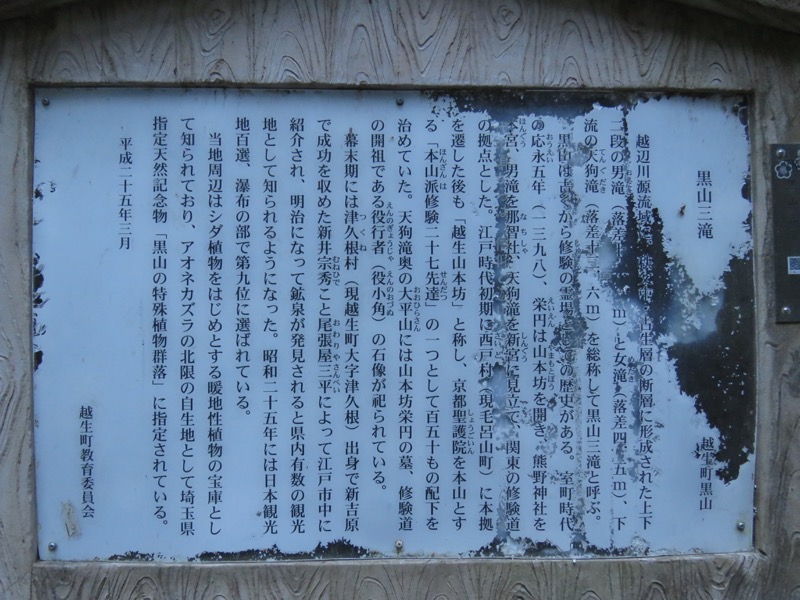 黒山三滝
越生町黒山
越辺川源流域の 古生層の断層に形成された上下
二段の男滝（落差十 m）と女滝（落差四・五m）、下
流の天狗滝（落差十 ・六m）を総称して黒山三滝と呼ぶ。
黒山は古くから修験の霊場としての歴史がある。室町時代
の応永五年（一三九八）、栄円は山本坊を開き、熊野神社を
本宮、男滝を那智社、天狗滝を新宮に見立て、関東の修験道
の拠点とした。江戸時代初期に西戸村（現毛呂山町）に本拠
を遷した後も「越生山本坊」と称し、京都聖護院を本山とす
る「本山派修験二十七先達」の一つとして百五十もの配下を
治めていた。天狗滝奥の大平山には山本坊栄円の墓、修験道
の開祖である役行者（役小角）の石像が祀られている。
幕末期には津久根村（現越生町大字津久根）出身で新吉原
で成功を収めた新井宗秀こと尾張屋三平によって江戸市中に
紹介され、明治になって鉱泉が発見されると県内有数の観光
地として知られるようになった。昭和二十五年には日本観光
地百選、瀑布の部で第九位に選ばれている。
当地周辺はシダ植物をはじめとする暖地性植物の宝庫とし
て知られており、アオネカズラの北限の自生地として埼玉県
指定天然記念物「黒山の特殊植物群落」に指定されている。
平成二十五年三月
越生町教育委員会